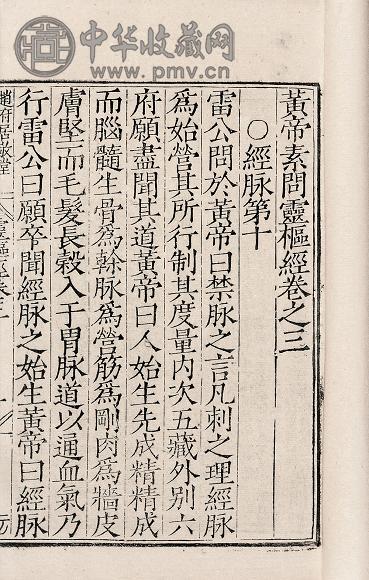 中华收藏网
www.pmv.cn
黃帝素問靈樞經卷之三
○經脉第十
雷公問於黃帝曰禁脉之言凡刺之理經脉
爲始營其所行制其度量内次五藏外别六
府願盡聞其道黃帝曰人始生先成精精成
而腦髓生骨爲幹脉爲營筋爲剛肉爲牆皮
膚堅而毛髮長穀入于胃脉道以通血氣乃
行雷公曰願卒聞經脉之始生黃帝曰經脉
趙府居敬堂